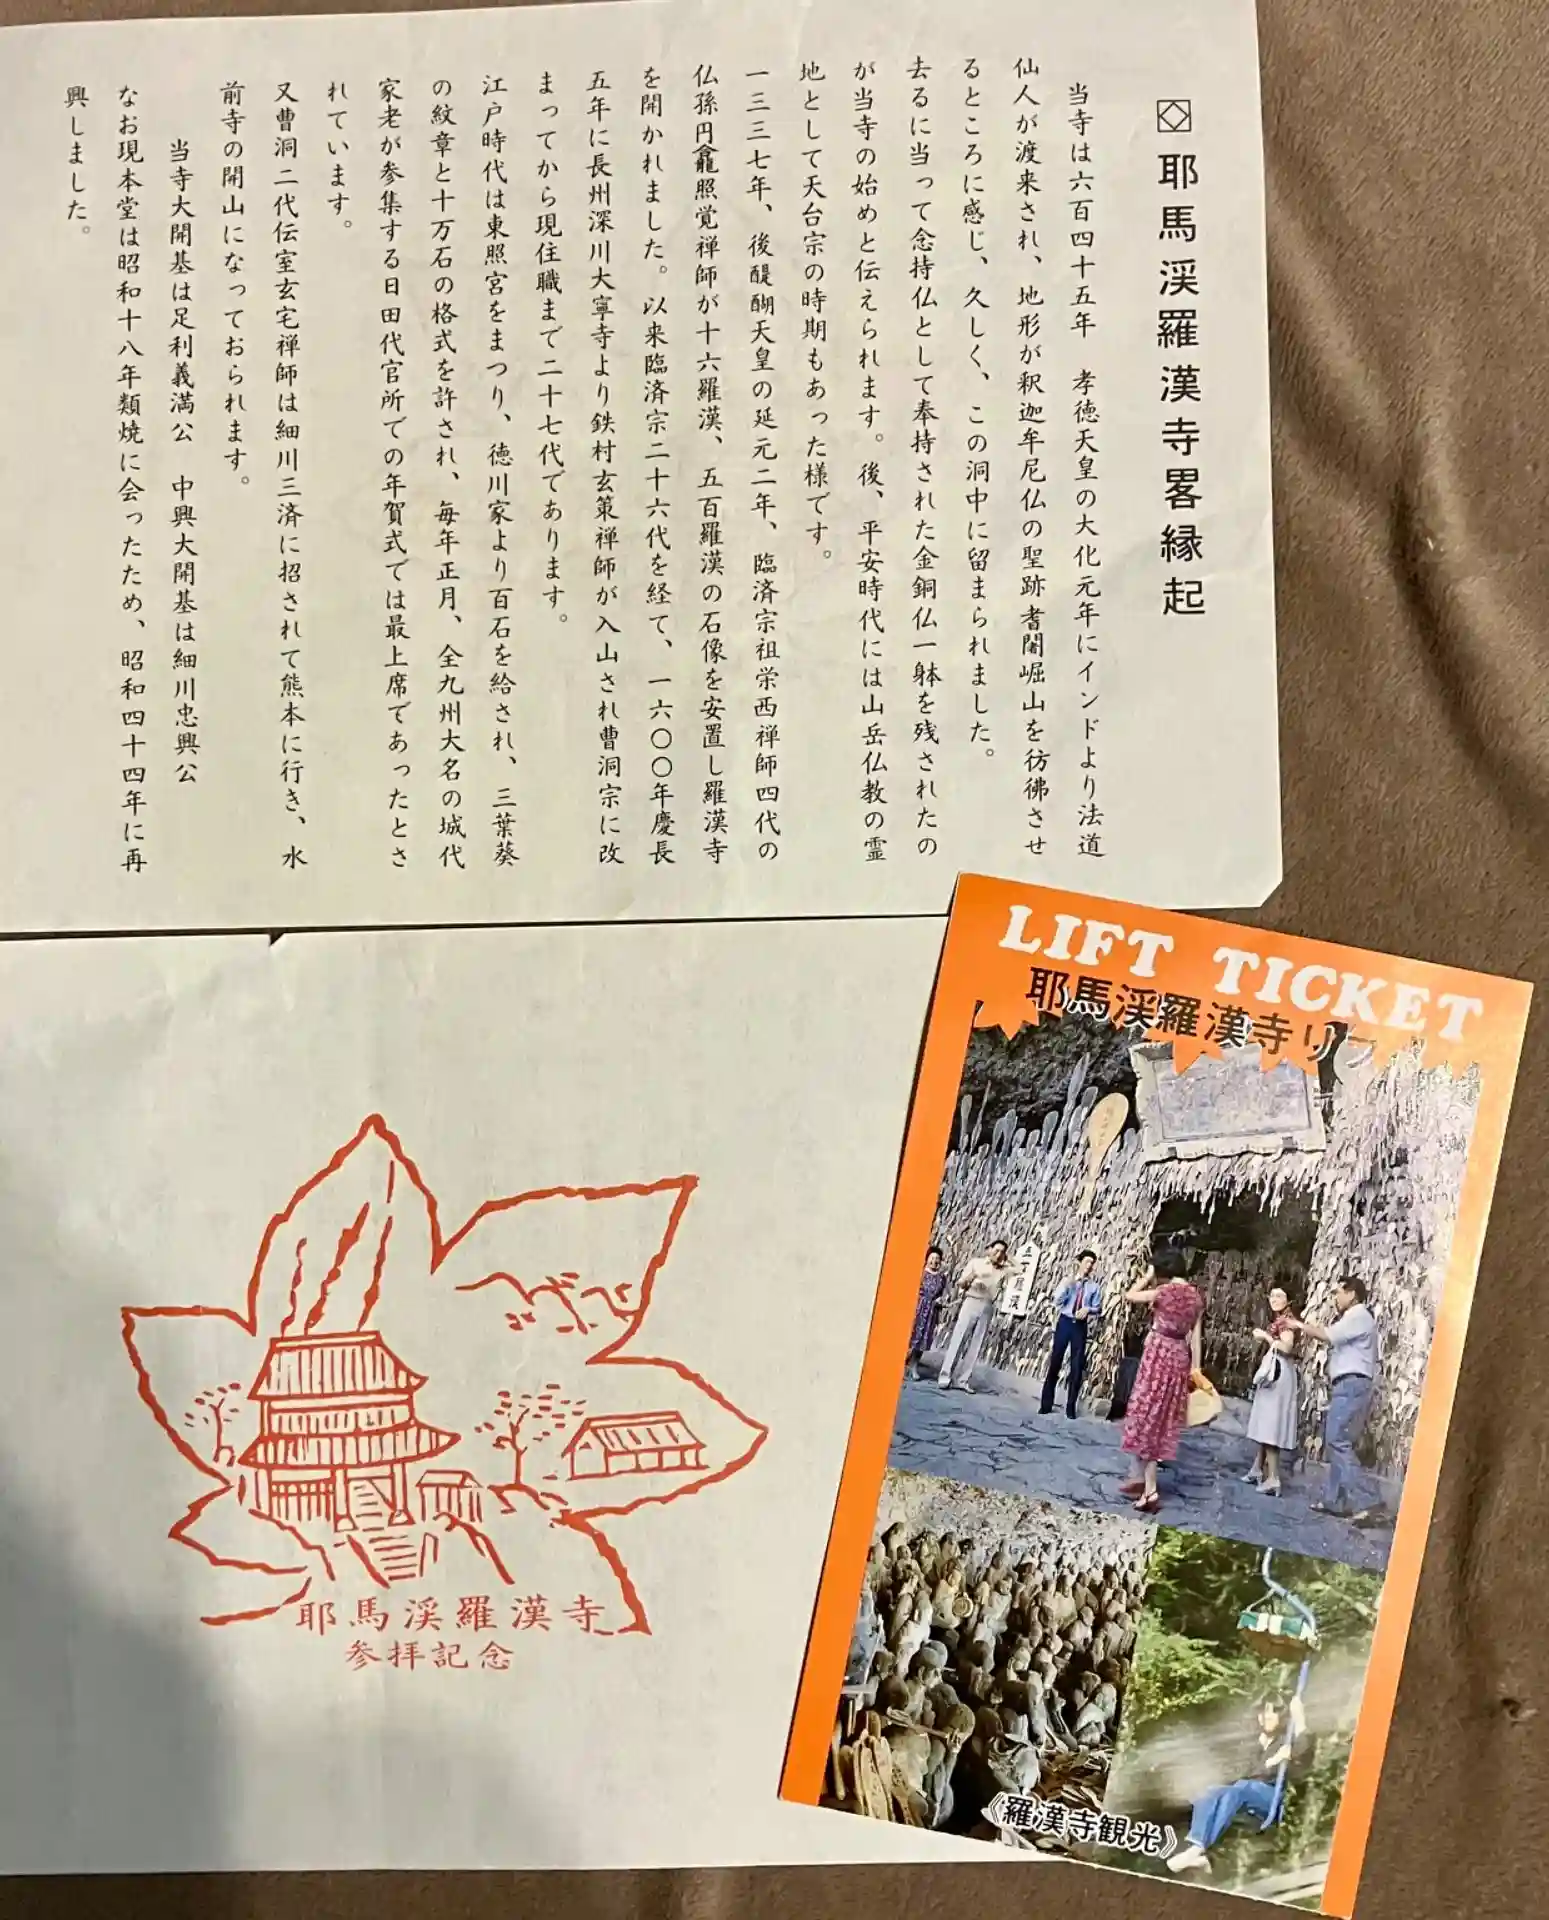 耶馬渓羅漢寺畧縁起
当寺は六百四十五年　孝徳天皇の大化元年にインドより法道
仙人が渡来され、地形が釈迦牟尼仏の聖跡耆闍崛山を彷彿させ
るところに感じ、久しく、この洞中に留まられました。
去るに当って念持仏として奉持された金銅仏一躰を残されたの
が当寺の始めと伝えられます。後、平安時代には山岳仏教の霊
地として天台宗の時期もあった様です。
一三三七年、後醍醐天皇の延元二年、臨済宗祖栄西禅師四代の
仏孫円龕照覚禅師が十六羅漢、五百羅漢の石像を安置し羅漢寺
を開かれました。以来臨済宗二十六代を経て、一六〇〇年慶長
五年に長州深川大寧寺より鉄村玄策禅師が入山され曹洞宗に改
まってから現住職まで二十七代であります。
江戸時代は東照宮をまつり、徳川家より百石を給され、三葉葵
の紋章と十万石の格式を許され、毎年正月、全九州大名の城代
家老が参集する日田代官所での年賀式では最上席であったとさ
れています。
又曹洞二代伝室玄宅禅師は細川三済に招されて熊本に行き、水
前寺の開山になっておられます。
当寺大開基は足利義満公　中興大開基は細川忠興公
なお現本堂は昭和十八年類焼に会ったため、昭和四十四年に再
興しました。
耶馬渓羅漢寺
参拝記念
LIFT TICKET
耶馬渓羅漢寺リフ
五百羅漢
《羅漢寺観光》